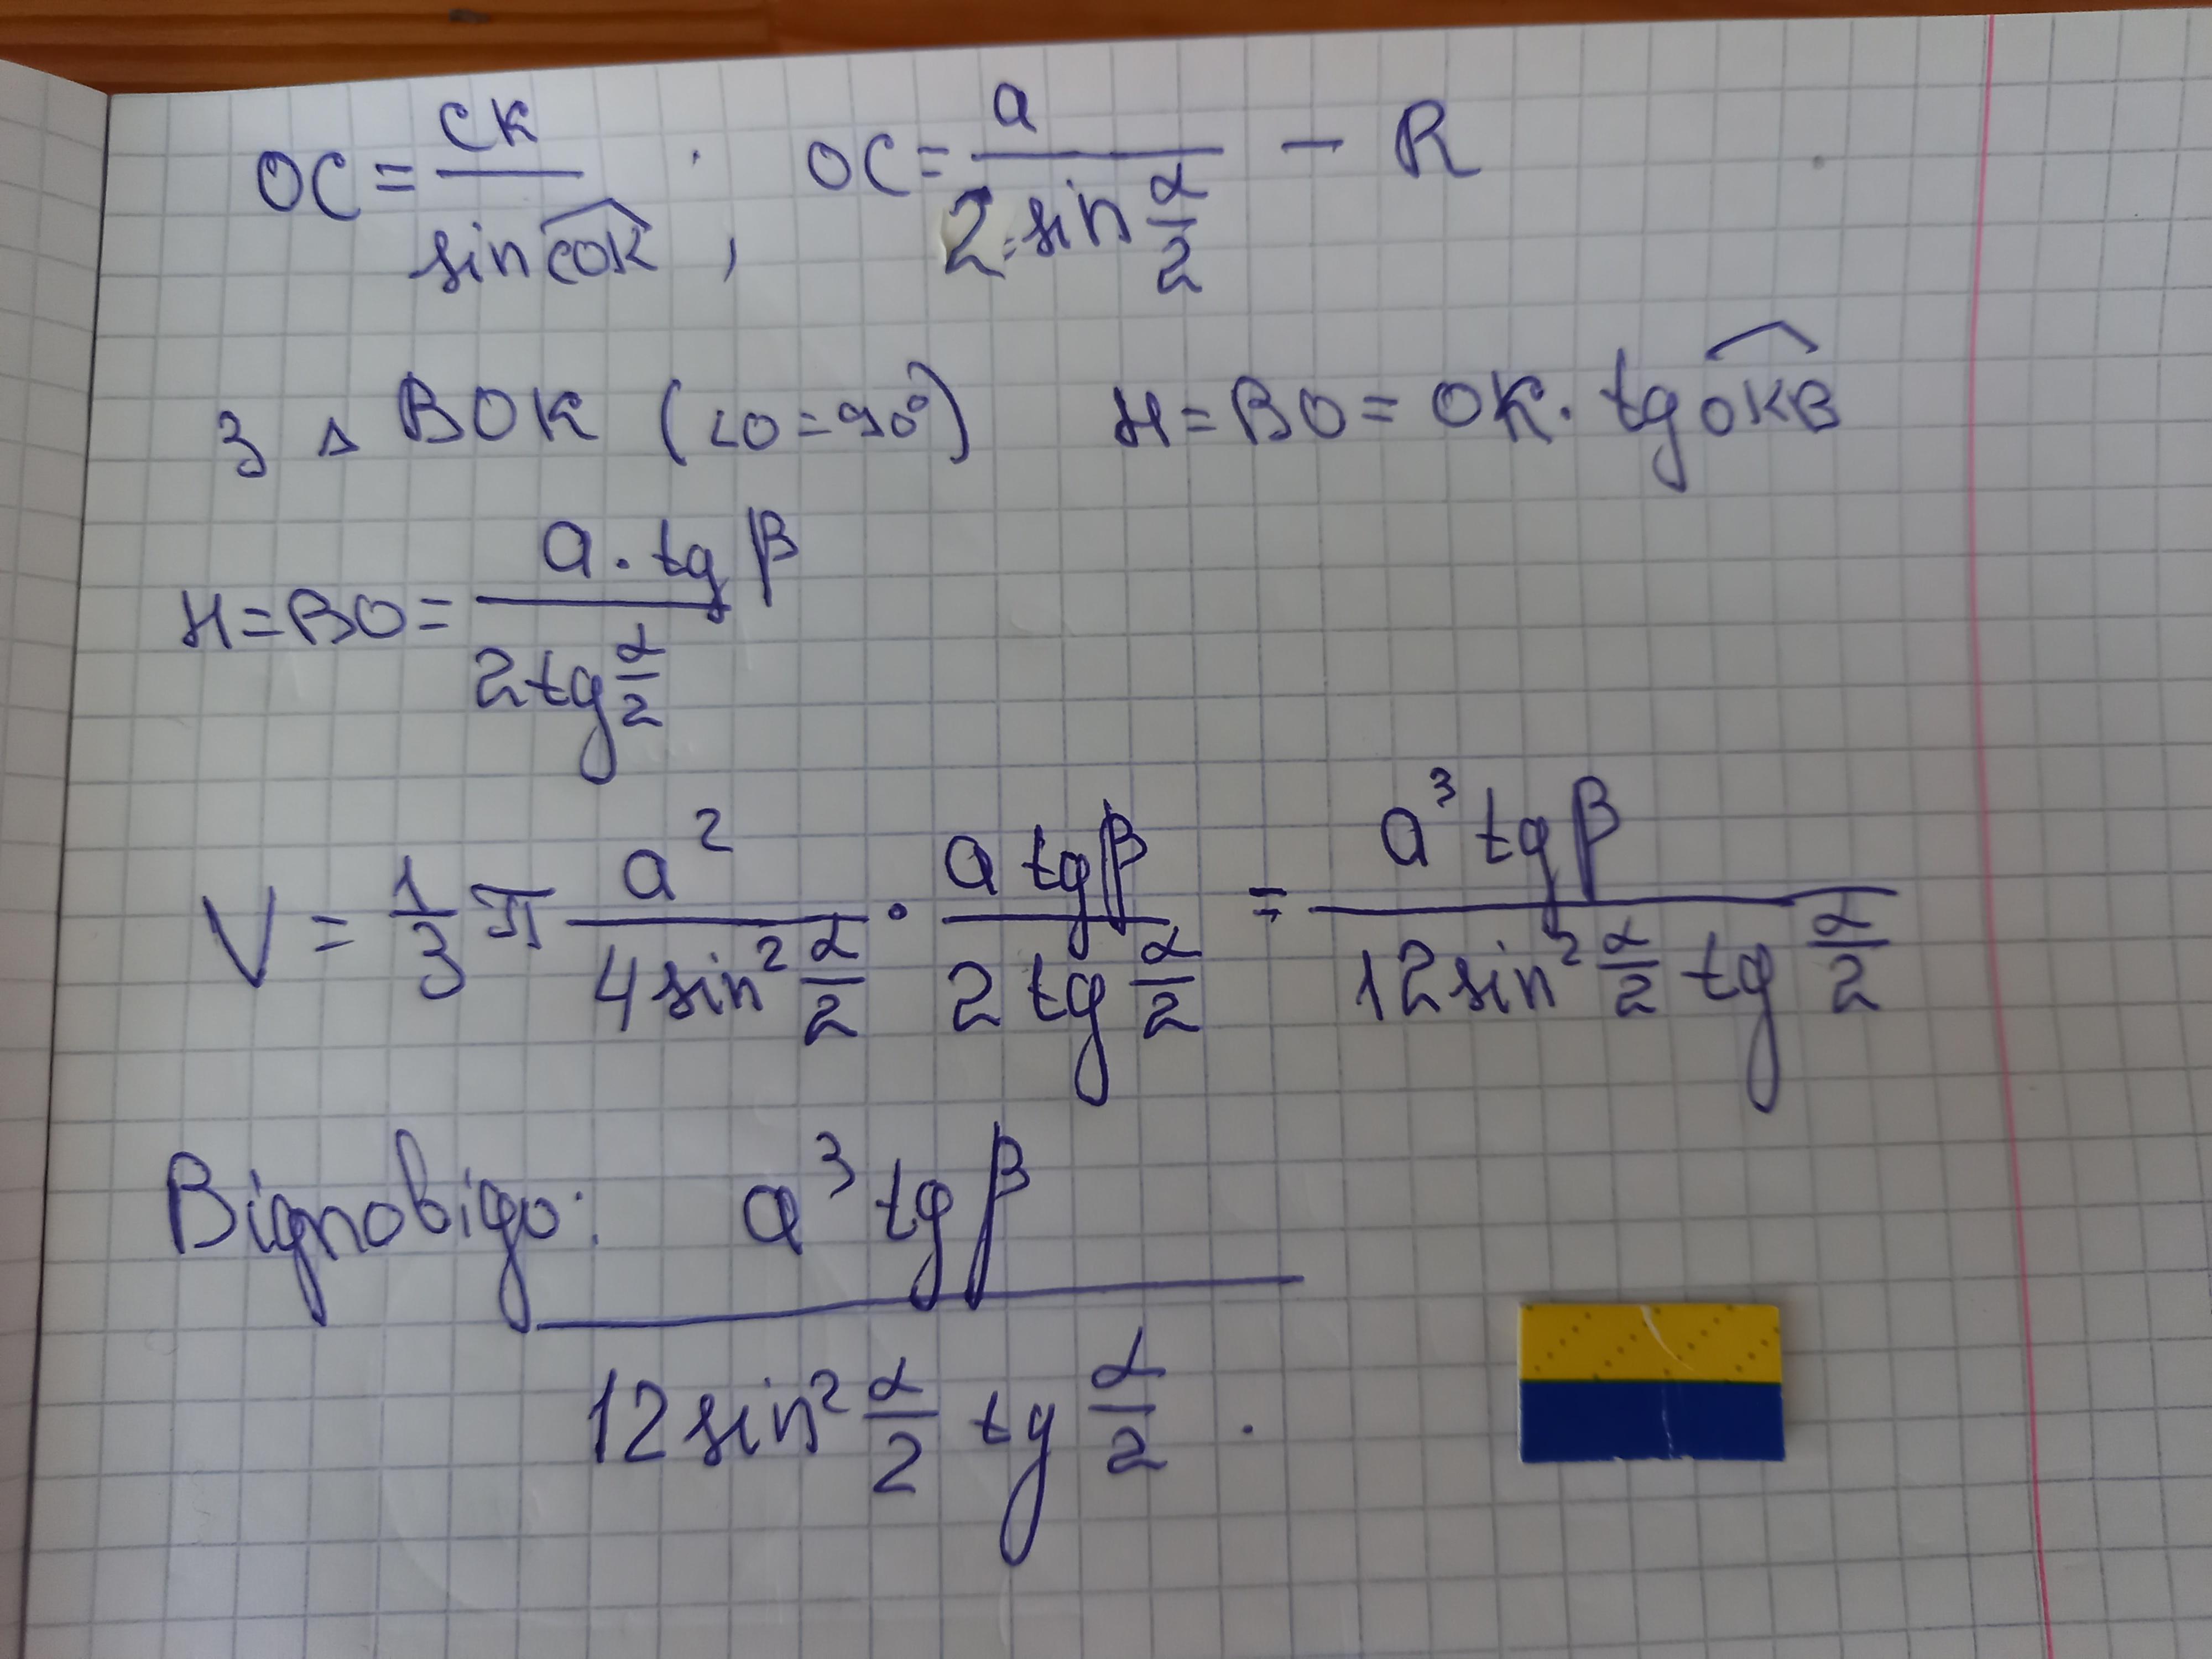 OC = CK / sin COK , OC = a / 2·sin α/2 — R
З △ BOK (∠O = 90°) H = BO = OK · tg OKB
H = BO = a · tg β / 2 tg α/2
V = 1/3 π a² / 4 sin² α/2 · a tg β / 2 tg α/2 = a³ tg β / 12 sin² α/2 tg α/2
Відповідь: a³ tg β / 12 sin² α/2 tg α/2 .